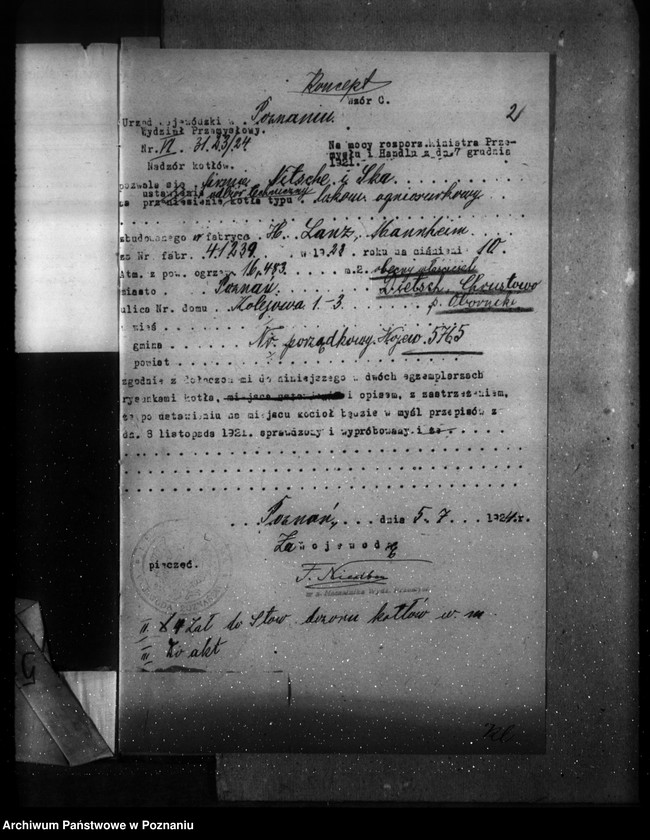 Koncept
Wzór C.
2
Urząd Wojewódzki w Poznaniu.
Wydział Przemysłowy.
Nr. VI 31.23/24
Nadzór kotłów.
Na mocy rozporz. Ministra Prze-
mysłu i Handlu z dn. 7 grudnia
1921.
pozwala się firmie Nitsche i Ska
ustawienie odbiór techniczny
na przeniesienie kotła typu lokom. ogniorurkowy
zbudowanego w fabryce H. Lanz, Mannheim
za Nr. fabr. 41239. w 1923 roku na ciśnienie 10.
Atm. z pow. ogrzew. 16,483 m.2. obecny właściciel
miasto Poznań Dietsch, Chrustowo
ulica Nr. domu Kolejowa 1-3. p. Oborniki
wieś
gmina Nr. porządkowy Wojew. 5765
powiat
zgodnie z dołączonemi do niniejszego w dwóch egzemplarzach
rysunkami kotła, i opisem, z zastrzeżeniem,
że po ustawieniu na miejscu kocioł będzie w myśl przepisów z
dn. 8 listopada 1921. sprawdzony i wypróbowany i że
Poznań, dnia 5. 7. 1924.r.
Za Wojewodę
pieczęć.
II. 4 Zał do Stow. dozoru kotłów w. m.
III Do akt
Archiwum Państwowe w Poznaniu